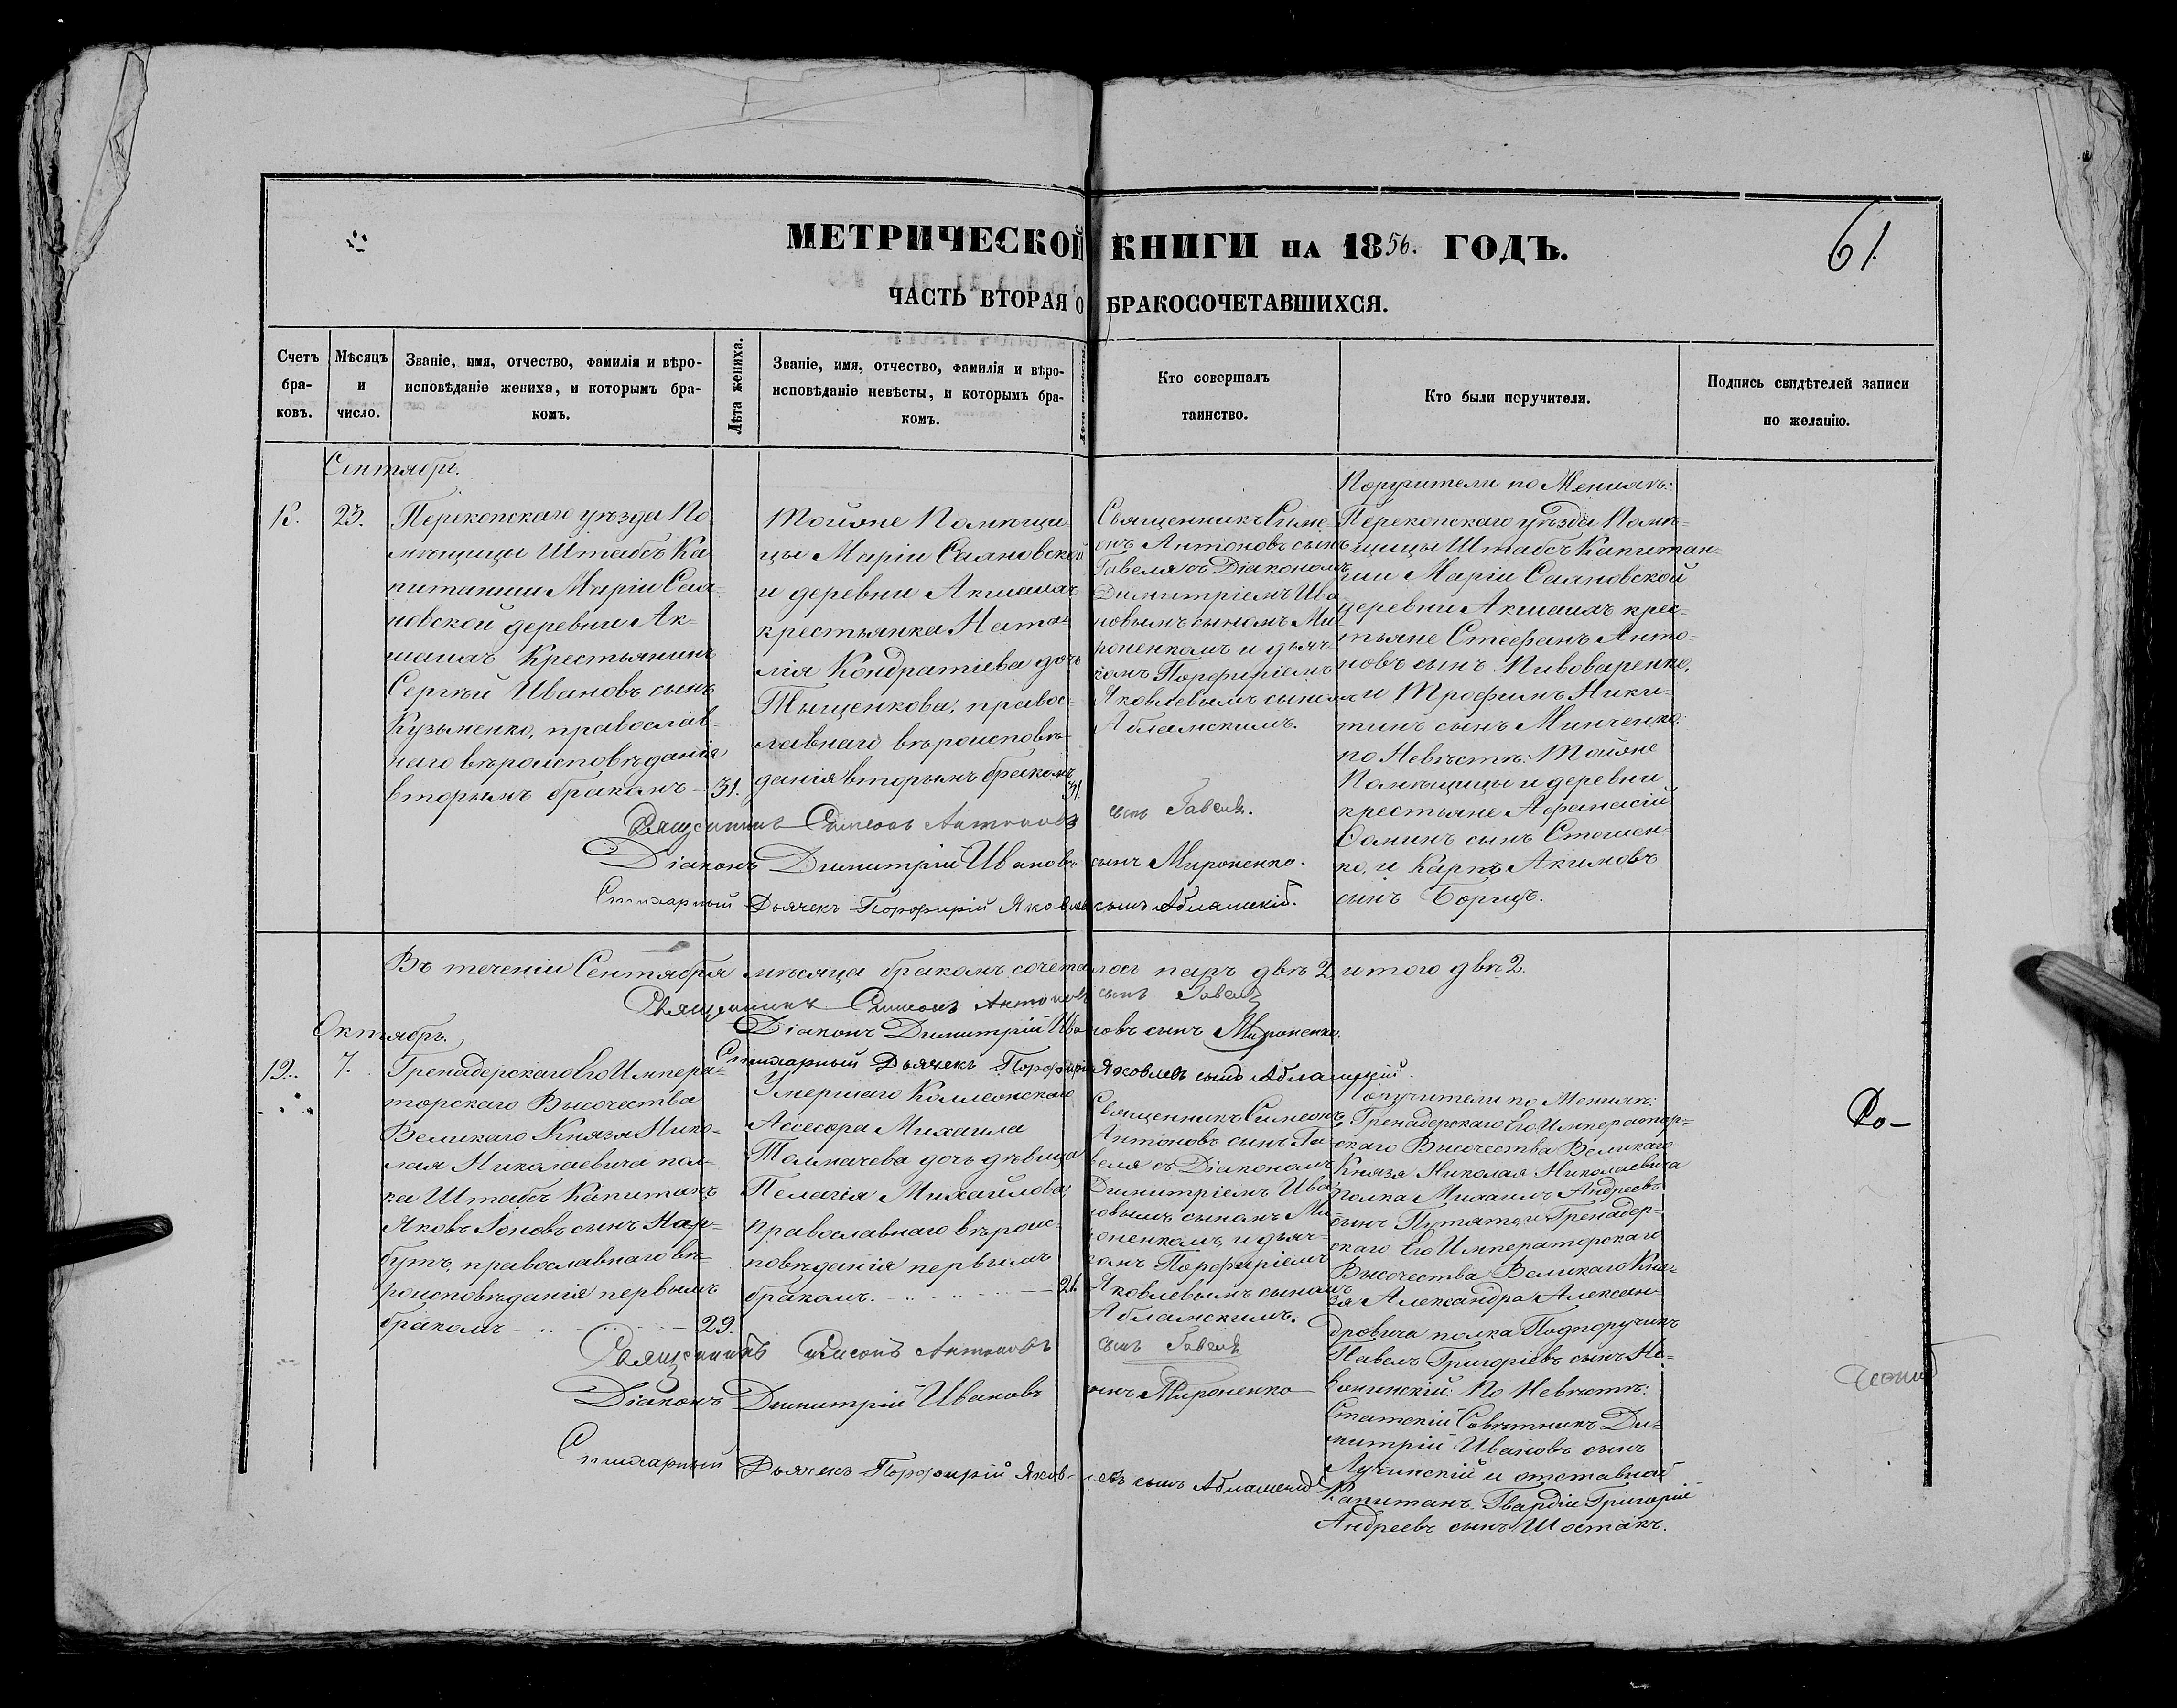 МЕТРИЧЕСКОЙ КНИГИ НА 1856. ГОДЪ.
61
ЧАСТЬ ВТОРАЯ О БРАКОСОЧЕТАВШИХСЯ.
Счетъ
бра-
ковъ.
Мѣсяцъ
и
число.
Званіе, имя, отчество, фамилія и вѣро-
исповѣданіе жениха, и которымъ бра-
комъ.
Лѣта жениха.
Званіе, имя, отчество, фамилія и вѣро-
исповѣданіе невѣсты, и которымъ бра-
комъ.
Лѣта невѣсты.
Кто совершалъ
таинство.
Кто были поручители.
Подпись свидѣтелей записи
по желанію.
Сентябрь.
23.
Перекопскаго уѣзда По
мѣщицы Штабсъ Ка
питанши Маріи Сая-
новской деревни Ак-
шамач Крестьянинъ
Сергѣй Ивановъ сынъ
Кузьменко, православ-
наго вѣроисповѣданія
вторымъ бракомъ -
31.
Тойжe Помѣщи
цы Маріи Саяновской
и деревни Акшамач
крестьянка Ната-
лія Кондратіева дочь
Тыщенкова, правос-
лавнаго вѣроисповѣ-
данія вторымъ бракомъ
31.
Священникъ Симе-
онъ Антоновъ сынъ
Гавеля съ Діакономъ
Димитріемъ Ива-
новымъ сыномъ Ми
роненкомъ и дьяч-
комъ Порфиріемъ
Яковлевымъ сыномъ
Абламскимъ.
Поручители по Женихѣ:
Перекопскаго уѣзда Помѣ-
щицы Штабсъ Капитан-
ши Маріи Саяновской
деревни Акшамач крес-
тьяне Стефанъ Анто-
новъ сынъ Пивоваренко,
и Трофимъ Ники-
тинъ сынъ Минченко:
по Невѣстѣ: Тойже
Помѣщицы и деревни
крестьяне Афанасій
Фоминъ сынъ Стешен-
ко, и Карпъ Акимовъ
сынъ Борщъ.
Священникъ Симеонъ Антоновъ сынъ Гавеля.
Діаконъ Димитрій Ивановъ сынъ Мироненко.
Дьячекъ Порфирій Яковлевъ сынъ Абламскій.
Въ теченіи Сентября мѣсяца бракомъ сочеталось паръ двѣ 2 итого двѣ 2.
Священникъ Симеонъ Антоновъ сынъ Гавеля
Діаконъ Димитрій Ивановъ сынъ Мироненко.
Дьячекъ Порфирій Яковлевъ сынъ Абламскій.
Октябрь.
12.
7.
Гренадерскаго Его Импера-
торскаго Высочества
Великаго Князя Нико-
лая Николаевича пол-
ка Штабсъ Капитанъ
Яковъ Іоновъ сынъ Нар-
бутъ, православнаго вѣ-
роисповѣданія первымъ
бракомъ -
29.
Умершаго Коллежскаго
Ассесора Михаила
Толмачева дочь дѣвица
Пелагія Михайлова,
православнаго вѣроис-
повѣданія первымъ
бракомъ.
21.
Священникъ Симеонъ
Антоновъ сынъ Га-
веля съ Діакономъ
Димитріемъ Ива-
новымъ сыномъ Ми-
роненкомъ, и дьяч-
комъ Порфиріемъ
Яковлевымъ сыномъ
Абламскимъ.
Поручители по Женихѣ:
Гренадерскаго Его Император-
скаго Высочества Великаго
Князя Николая Николаевича
полка Михаилъ Андреевъ
сынъ Путята, и Гренадер-
скаго Его Императорскаго
Высочества Великаго Кня-
зя Александра Алексан-
дровича полка Подпоручикъ
Павелъ Григоріевъ сынъ
По Невѣстѣ:
Статскій Совѣтникъ Ди-
митрій Ивановъ сынъ
Лучинскій и отставной
Капитанъ Гвардіи Григорій
Андреевъ сынъ Шостакъ.
Священникъ Симеонъ Антоновъ сынъ Гавеля
Діаконъ Димитрій Ивановъ сынъ Мироненко
Дьячекъ Порфирій Яковлевъ сынъ Абламскій